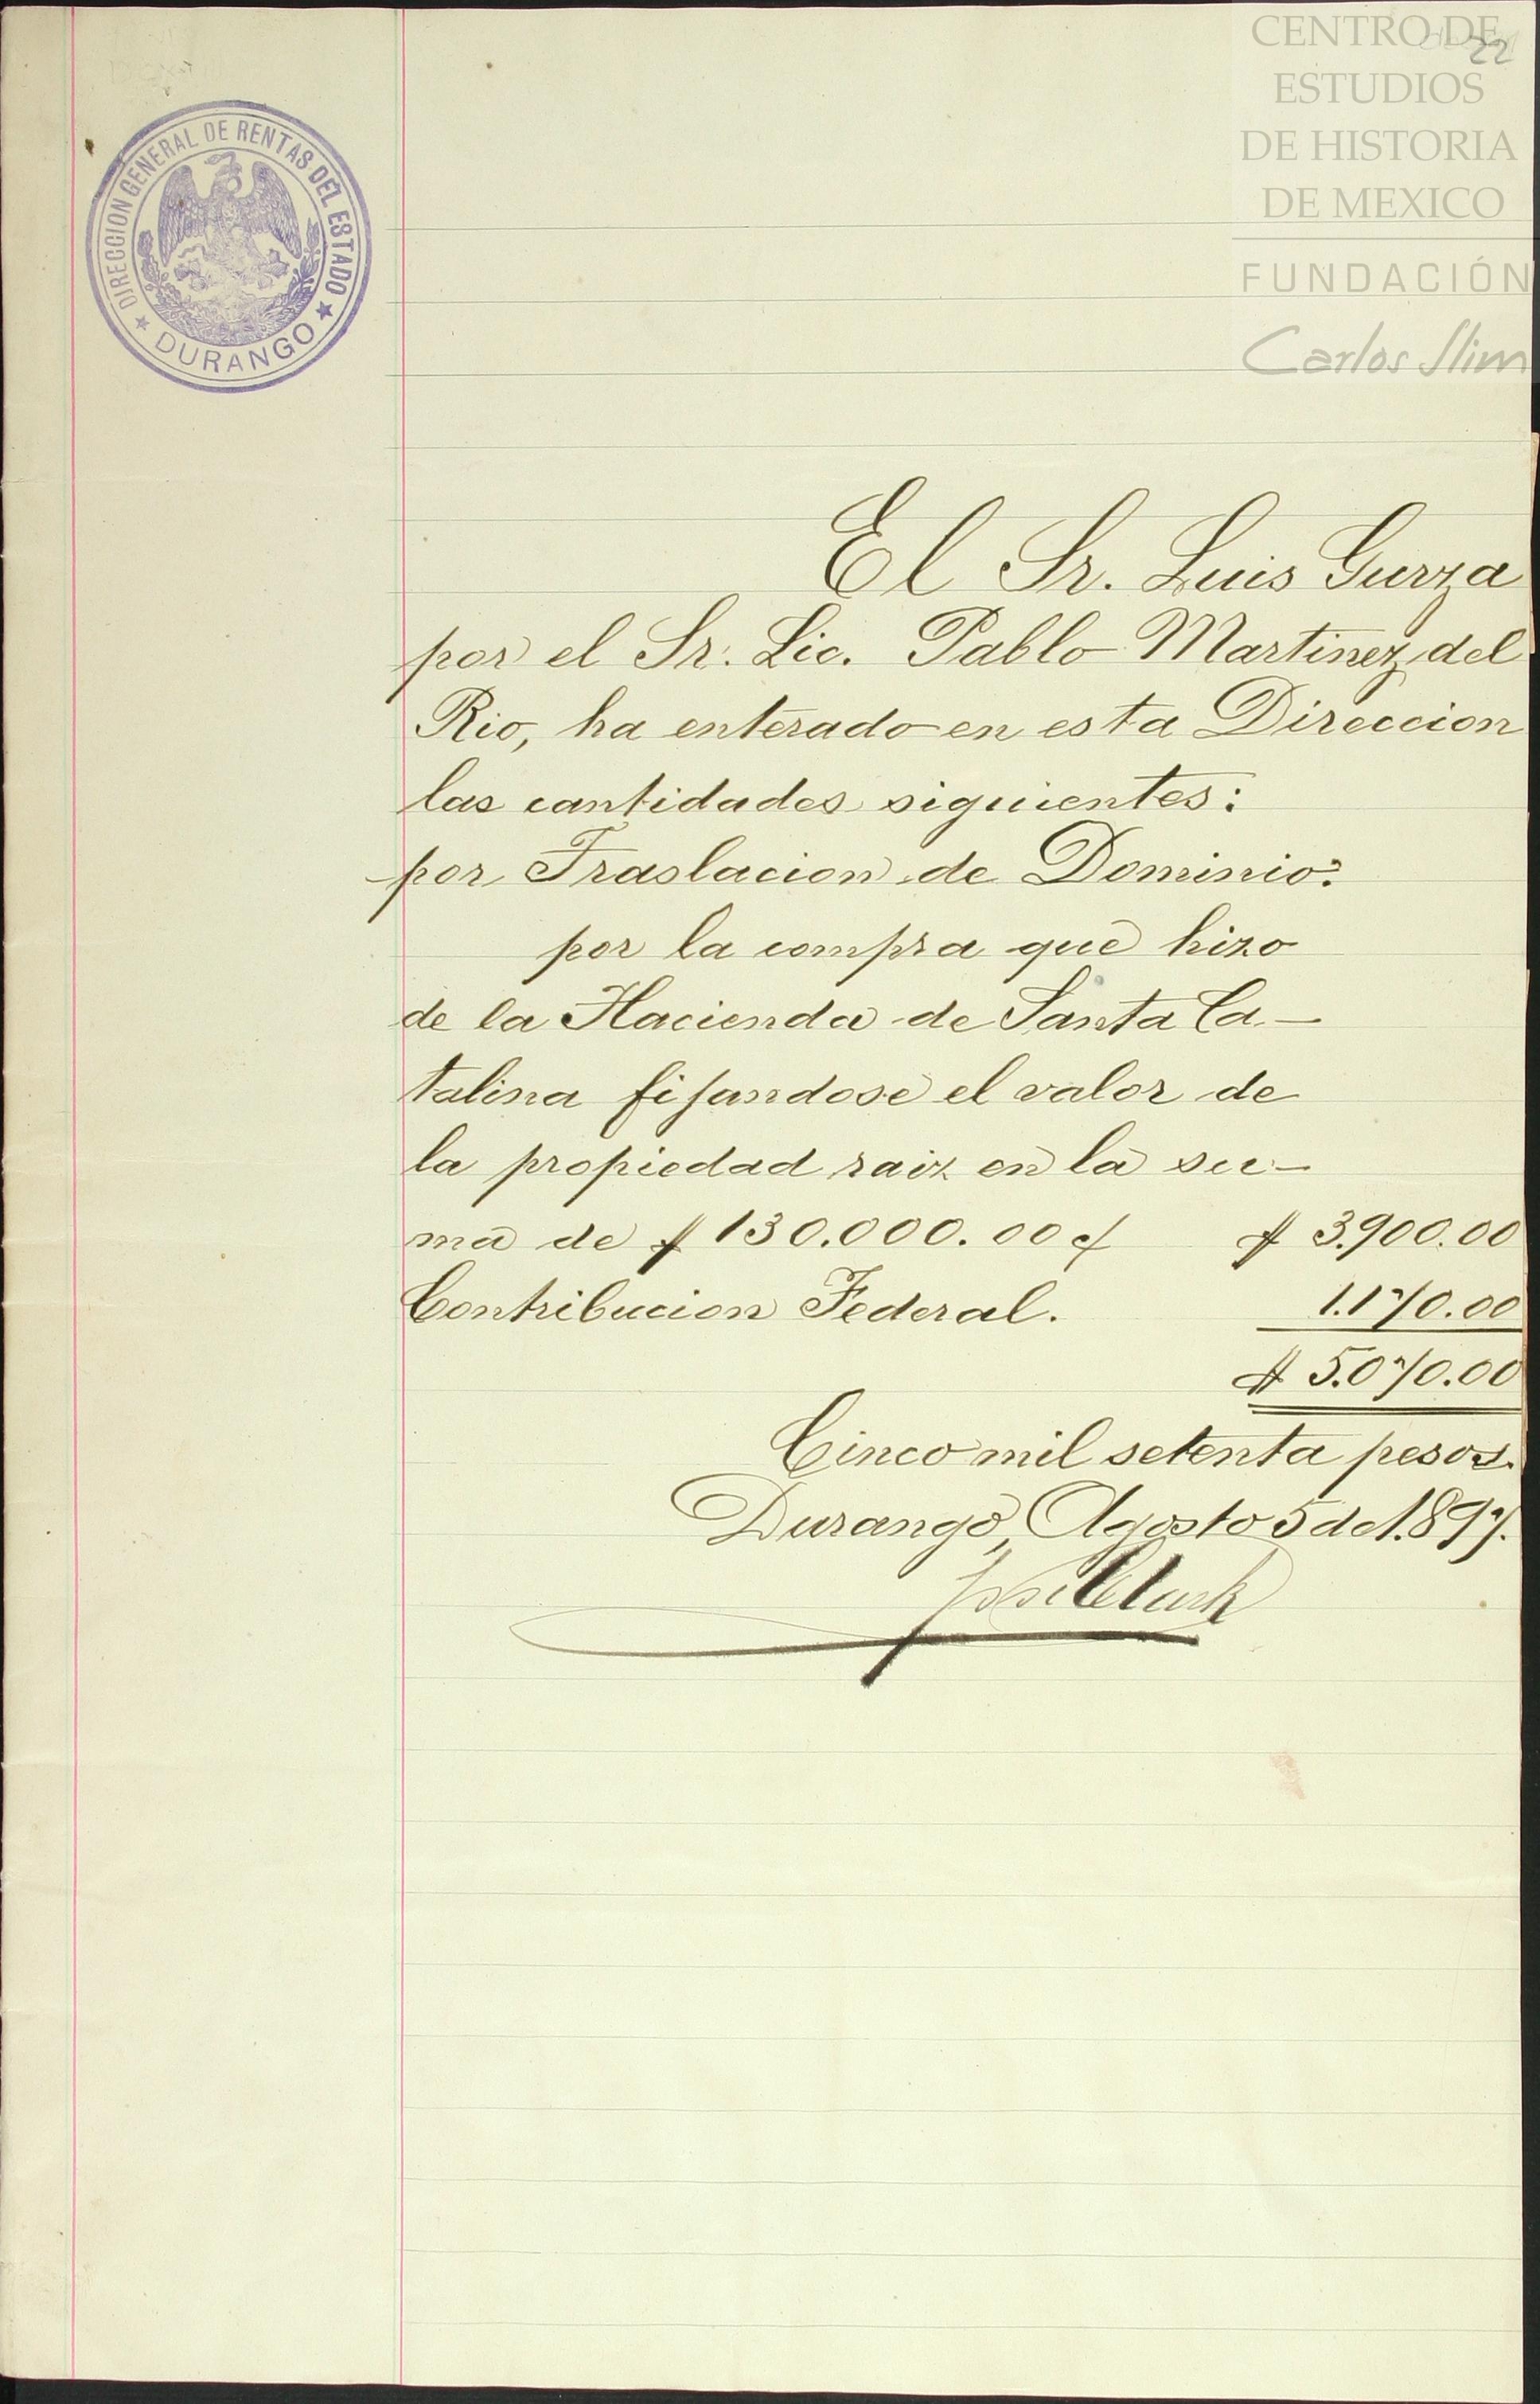 CENTRO DE
ESTUDIOS
DE HISTORIA
DE MEXICO
FUNDACIÓN
Carlos Slim
22
DIRECCION GENERAL DE RENTAS DEL ESTADO
★ DURANGO ★
El Sr. Luis Gurza
por el Sr. Lic. Pablo Martinez del
Rio, ha enterado en esta Direccion
las cantidades siguientes:
por Traslacion de Dominio:
por la compra que hizo
de la Hacienda de Santa Ca-
talina fijandose el valor de
la propiedad raiz en la su-
ma de $ 130.000.00 ₡ $ 3.900.00
Contribucion Federal. 1.170.00
$ 5.070.00
Cinco mil setenta pesos.
Durango, Agosto 5 de 1.897.
José Clark